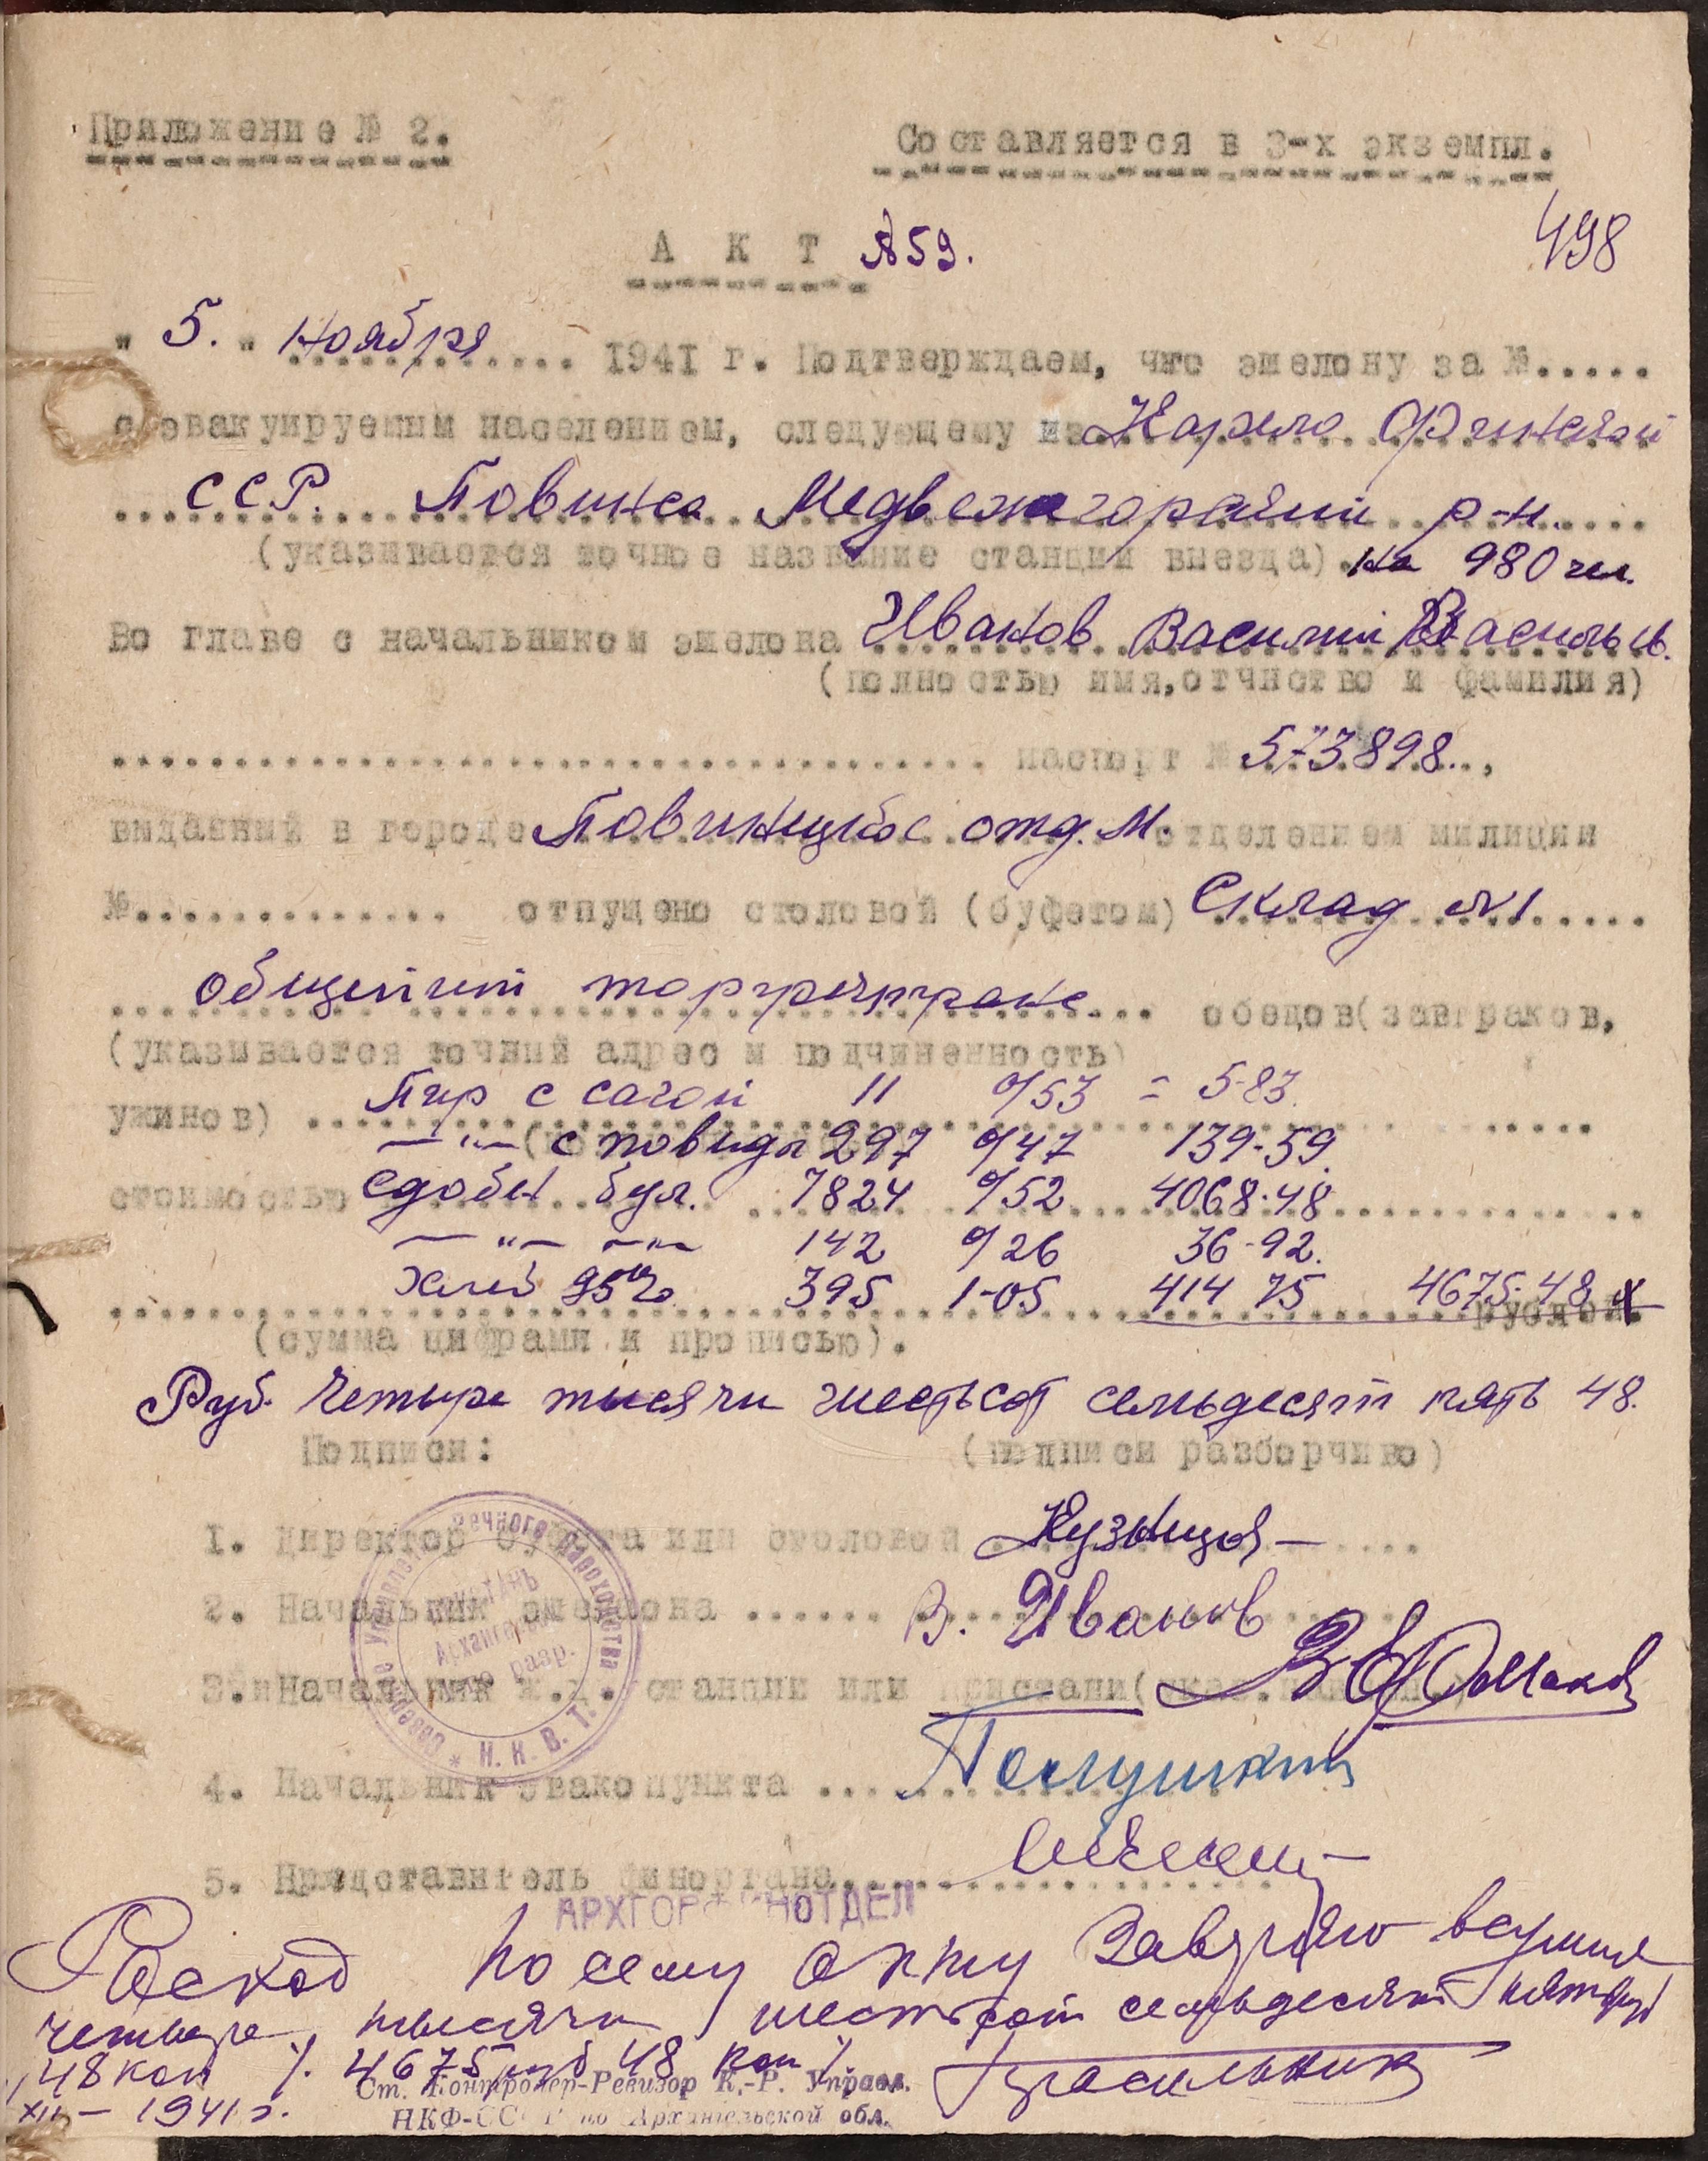 Приложение № 2.
Составляется в 3-х экземпл.
498
А К Т №59.
" 5. " ноября 1941 г. Подтверждаем, что эшелону за №.....
с эвакуируемым населением, следующему из Карело Финской
ССР. Повинса Медвежегорский р-н.
(указывается точное название станции выезда). на 980 чел.
Во главе с начальником эшелона Иванов Василий Васильев.
(полностью имя, отчнство и фамилия)
паспорт № 573898..,
выданный в городе Повинецкое отд. М. отделением милиции
№............. отпущено столовой (буфетом) Склад №1
общепит торгречтранс... обедов(завтраков,
(указывается точний адрес и подчиненность)
Пир с сагой 11 0/53 = 5-83.
ужинов)
—"— с повидл 297 0/47 139-59.
стоимостью сдобн бул. 7824 0/52 4068-48
—"— —"— 142 0/26 36-92.
Хлеб 95% 395 1-05 414 75 4675-48 рублей.
(сумма цифрами и прописью).
Руб. Четыре тысячи шестьсот семьдесят пять 48.
Подписи: (подписи разборчиво)
1. Директор буфета или столовой Кузнецов
2. Начальник эшелона ...... В. Иванов
3. Начальник ж.д. станции или пристани(
4. Начальник эвакопункта ...
5. Представитель финоргана
Северное Управлен. Речного Пароходства * Н. К. В. Т. *
ПРИСТАНЬ
Архангельск
разр.
АРХГОРФИНОТДЕЛ
Расход по сему акту Заверяю в сумме
четыре тысячи шестьсот семьдесят пять руб
48 коп /. 4675 руб 48 коп /.
Ст. Контролер-Ревизор К.-Р. Управл.
НКФ-СССР по Архангельской обл.
XII — 1941 г.
Красильник